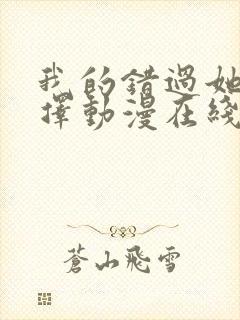 我的錯過她
擇動漫在綫
蒼山飛雪